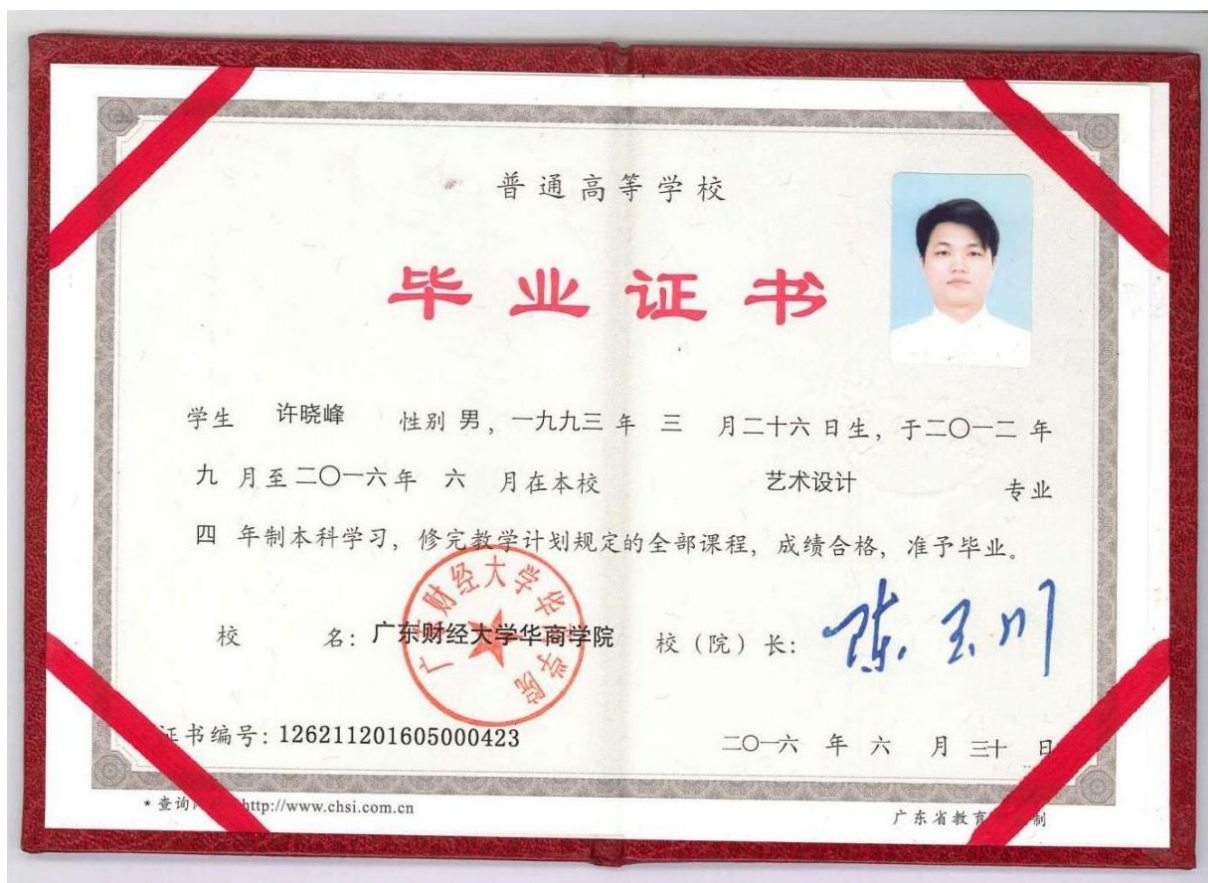 普通高等学校
毕业证书
学生 许晓峰 性别 男，一九九三 年 三 月二十六 日生，于二〇一二 年
九 月至二〇一六年 六 月在本校 艺术设计 专业
四 年制本科学习，修完教学计划规定的全部课程，成绩合格，准予毕业。
校 名：广东财经大学华商学院 校（院）长：陈玉川
广东财经大学华商学院
证书编号：126211201605000423 二〇一六 年 六 月 三十 日
*查询 http://www.chsi.com.cn 广东省教育 制